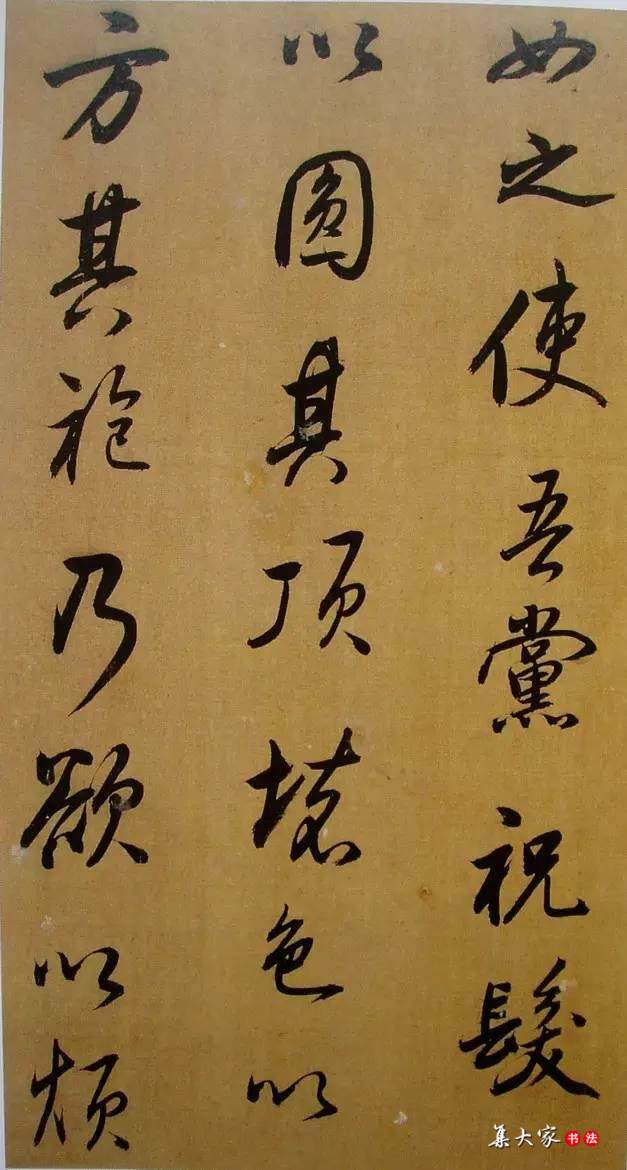 如之使吾黨祝髮
以圓其頂壞色以
方其袍乃欲以煩
集大家书法